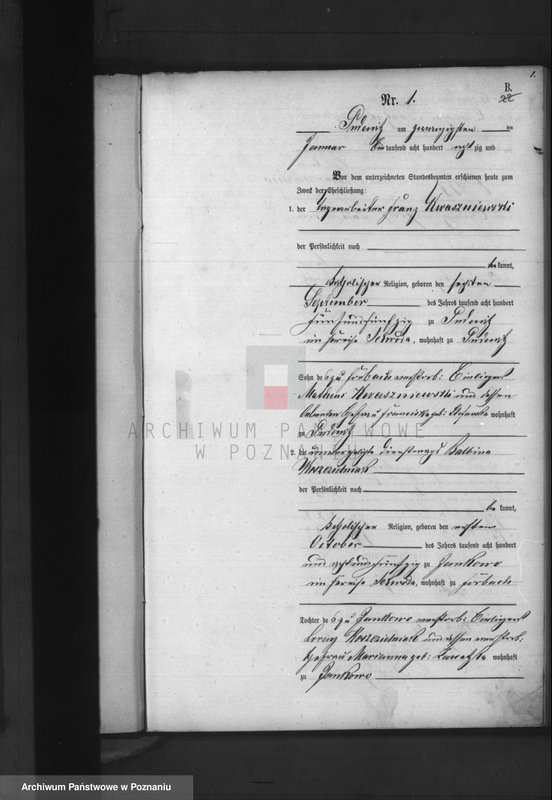 1.
B.
22
Nr. 1.
Pudewitz am zwanzigsten ten
Januar Ein tausend acht hundert acht zig und
Vor dem unterzeichneten Standesbeamten erschienen heute zum
Zweck der Eheschließung:
1. der Tagearbeiter Franz Kwaszniewski
der Persönlichkeit nach
be kannt,
katholischer Religion, geboren den sechsten
September des Jahres tausend acht hundert
fünfundfünfzig zu Pudewitz
im Kreise Schroda, wohnhaft zu Pudewitz
Sohn des zu verstorb: Einliegers
Matheus Kwaszniewski und dessen
Ehefrau geb: wohnhaft
zu Pudewitz
2. die unverehelichte Dienstmagd Balbina
der Persönlichkeit nach
be kannt,
katholischer Religion, geboren den ersten
October des Jahres tausend acht hundert
und achtundfünfzig zu Jankowo
im Kreise Schroda, wohnhaft zu
Tochter des zu Jankowo verstorb: Einliegers
Lorenz und dessen verstorb:
Ehefrau Marianna geb: wohnhaft
zu Jankowo
ARCHIWUM PAŃSTWOWE
W POZNANIU
Archiwum Państwowe w Poznaniu